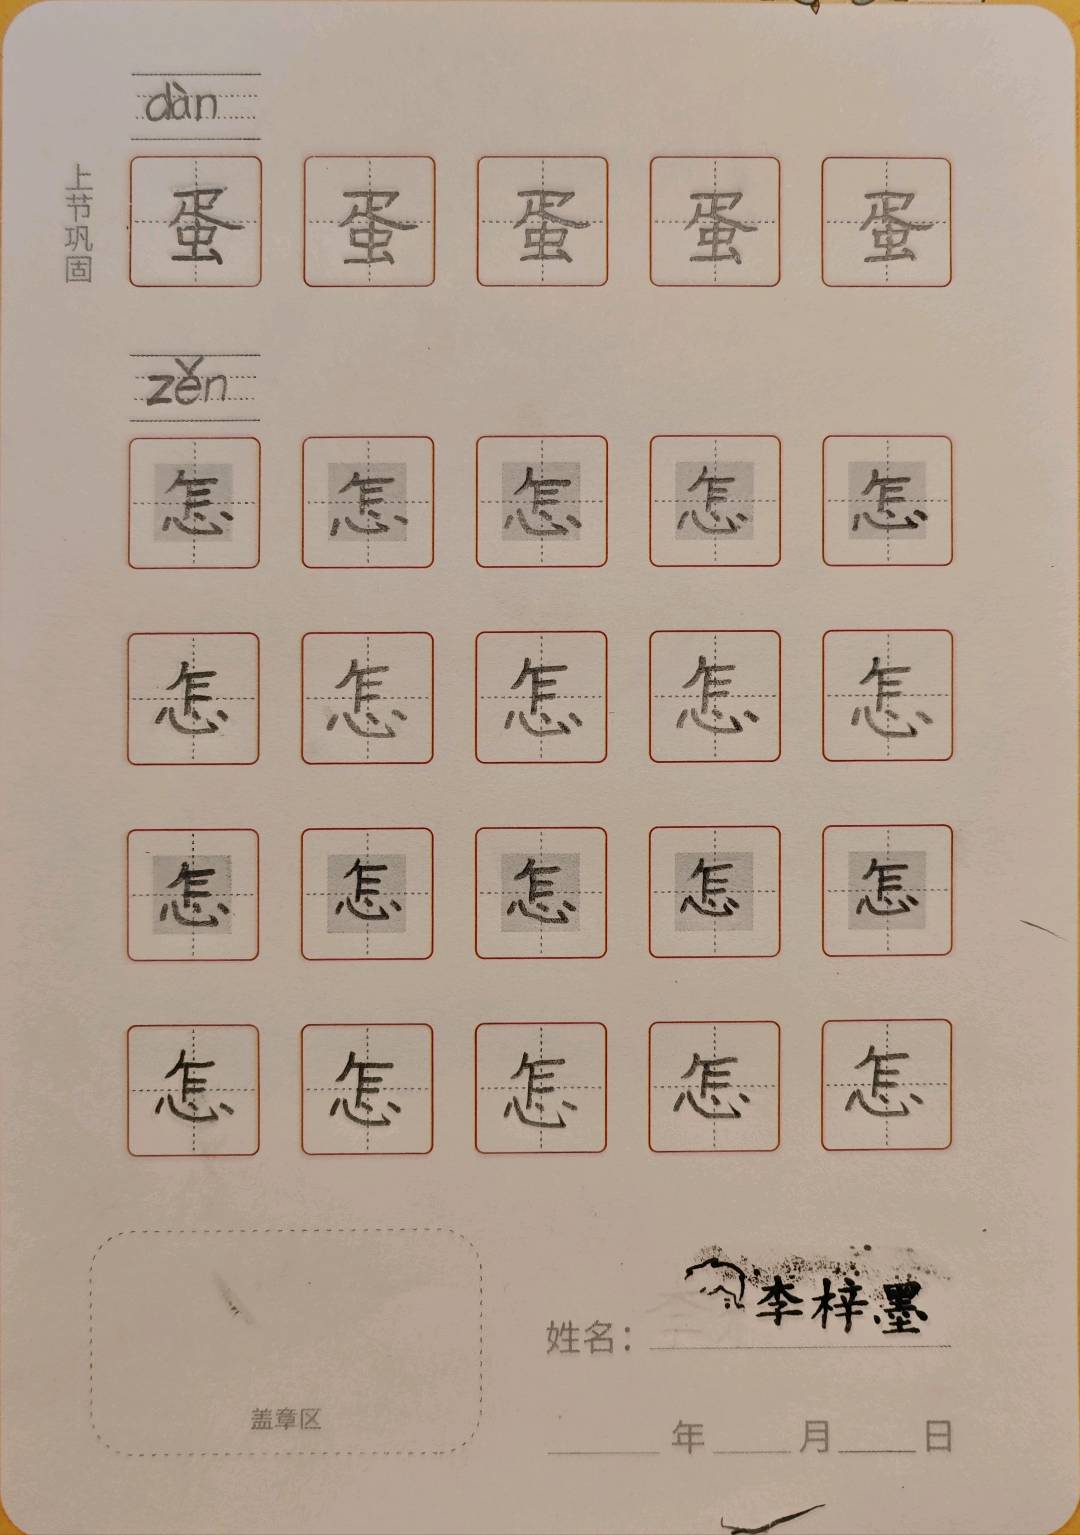 dàn
上节巩固
蛋 蛋 蛋 蛋 蛋
zěn
怎 怎 怎 怎 怎
怎 怎 怎 怎 怎
怎 怎 怎 怎 怎
怎 怎 怎 怎 怎
姓名：李梓墨
盖章区
年 月 日